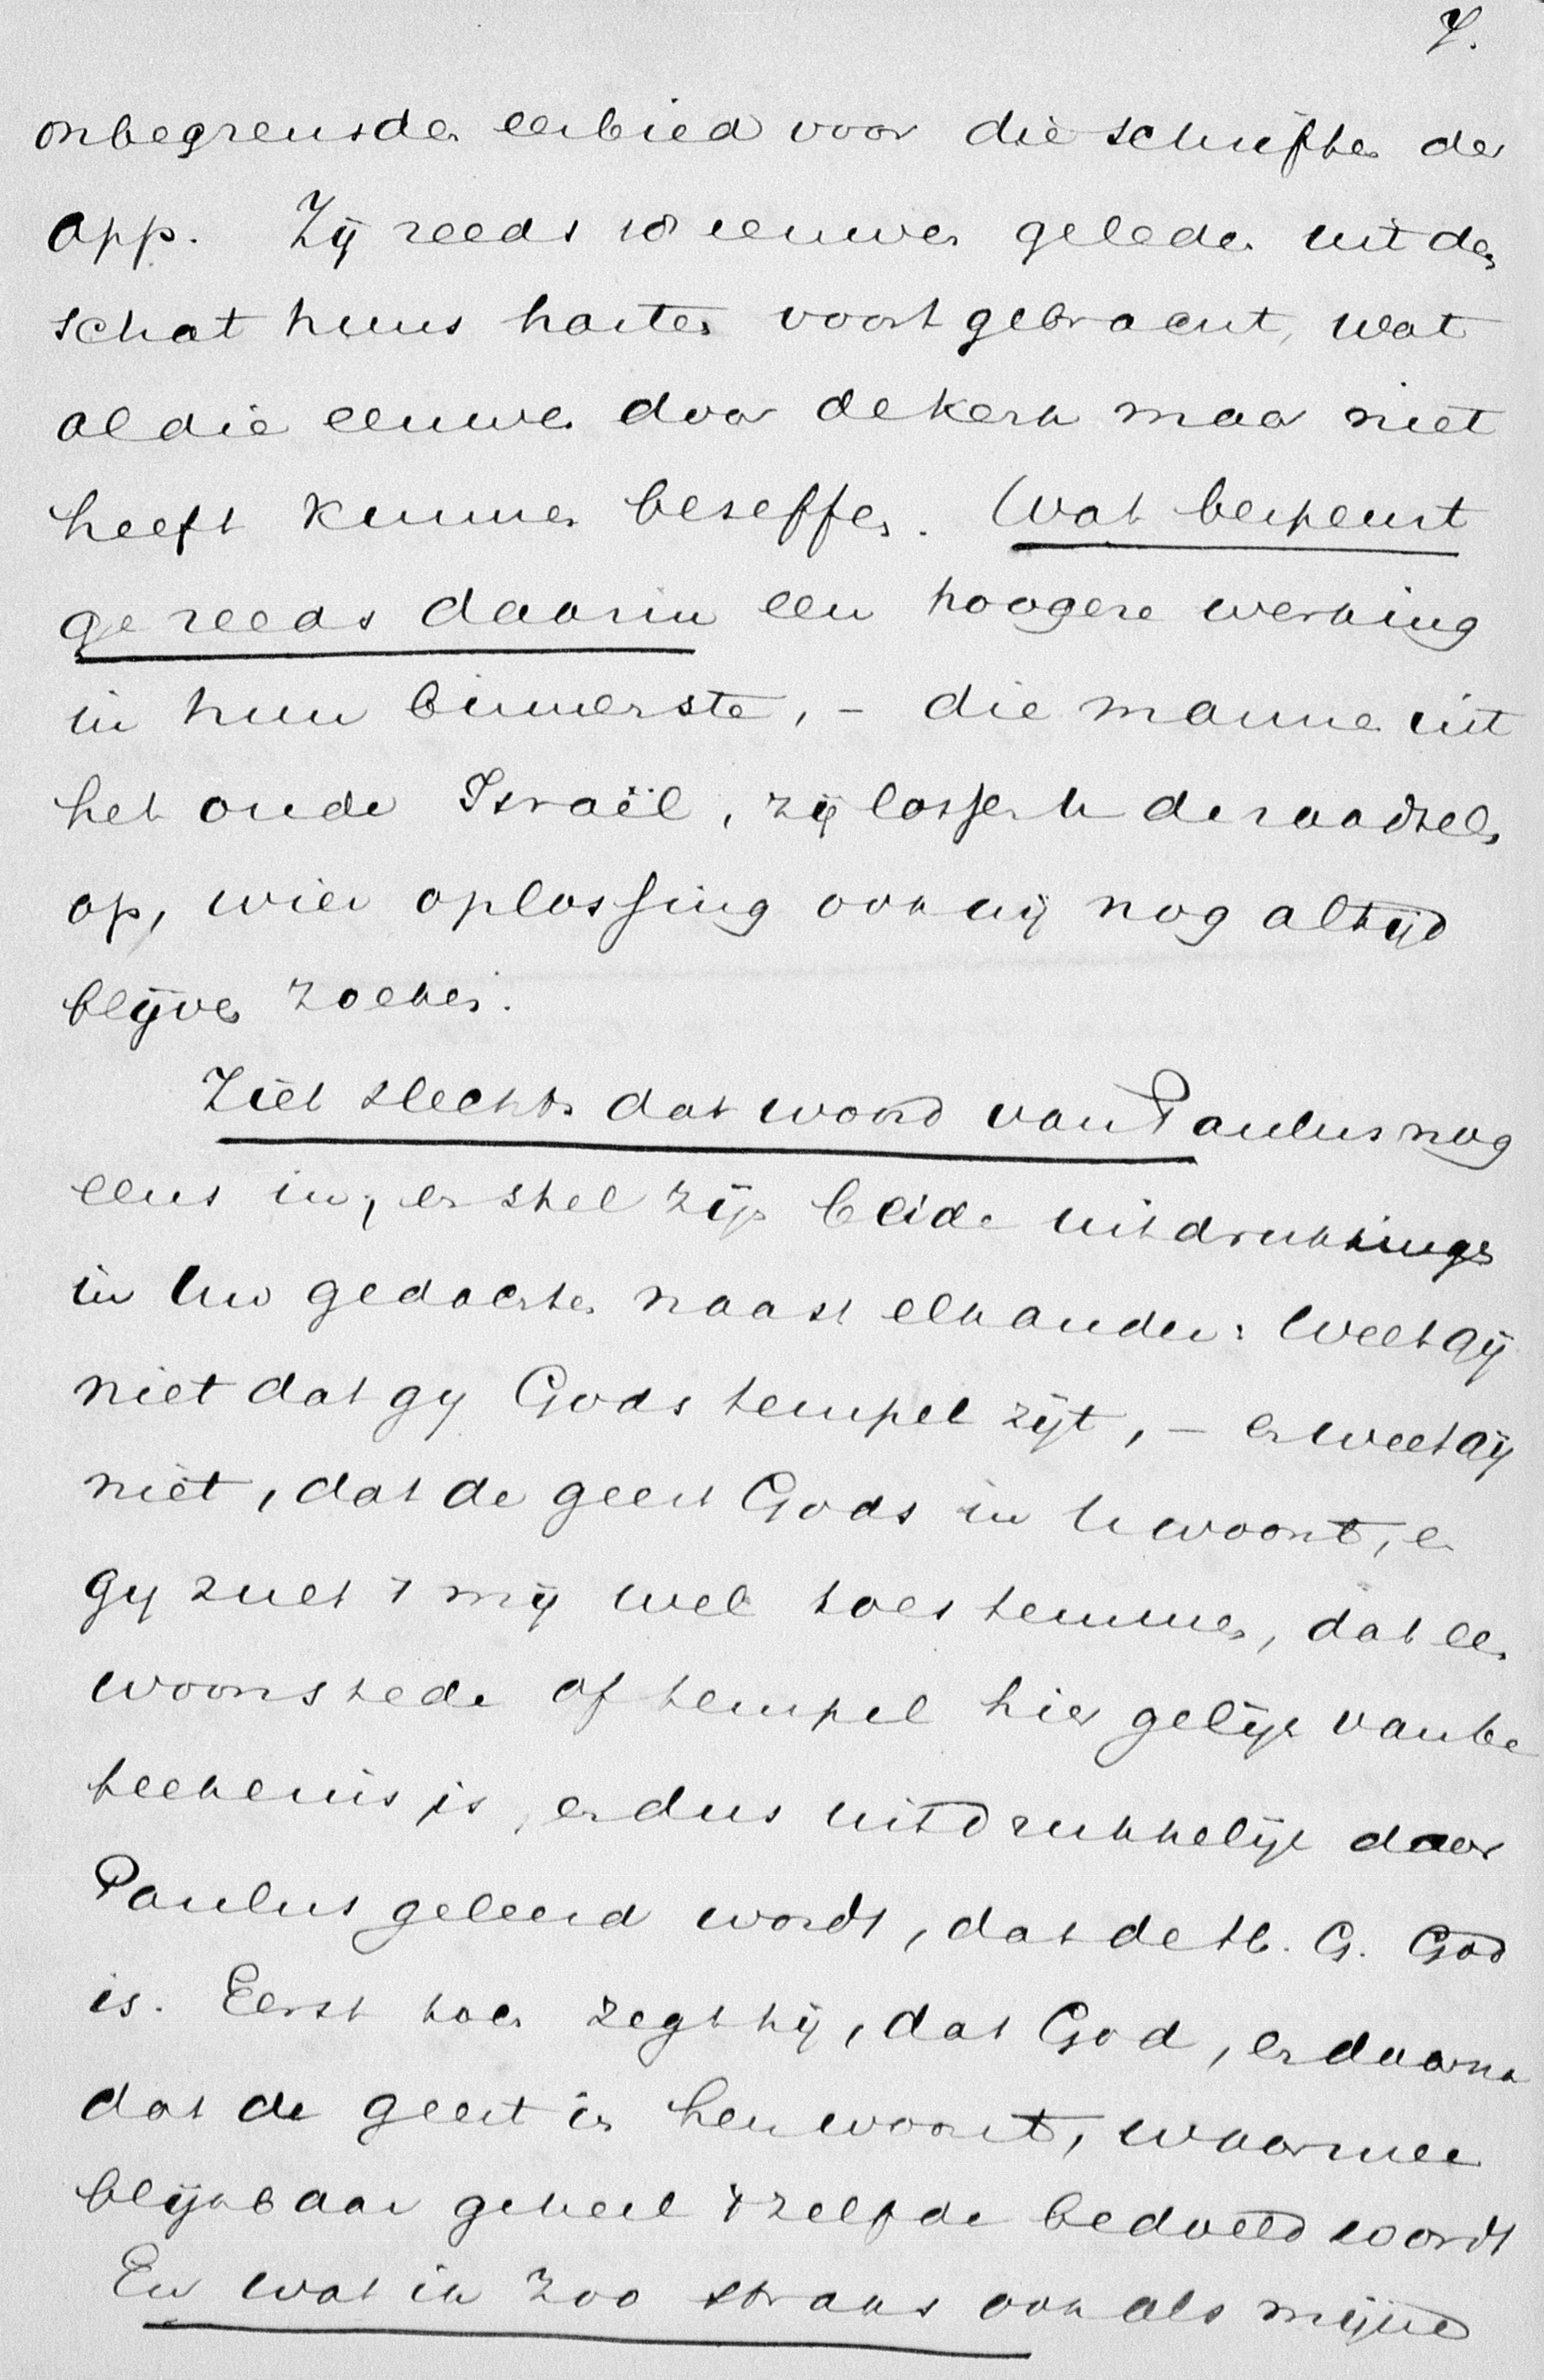 7.
onbegrensden eerbied voor die schriften der
App. Zij reeds 18 eeuwen geleden uit den
schat huns harten voortgebracht, wat
al die eeuwen door de kerk maar niet
heeft kunnen beseffen. Wat bespeurt
ge reeds daarin een hoogere werking
in hun binnenste, - die mannen uit
het oude Israël, zij lossen U de raadsels
op, wier oplossing ook wij nog altijd
blijven zoeken.
Ziet slechts dat woord van Paulus nog
eens in, en stel zijn beide uitdrukkingen
in Uw gedachten naast elkander: Weet gij
niet dat gij Gods tempel zijt, - en weet gij
niet, dat de geest Gods in U woont, en
gij zult 't mij wel toestemmen, dat een
woonstede of tempel hier gelijk van be
teekenis is, en dus uitdrukkelijk door
Paulus geleerd wordt, dat de H. G. God
is. Eerst toch zegt hij, dat God, en daarna
dat de geest in hen woont, waarmee
blijkbaar geheel 't zelfde bedoeld wordt
En wat ik zoo straks ook als mijne